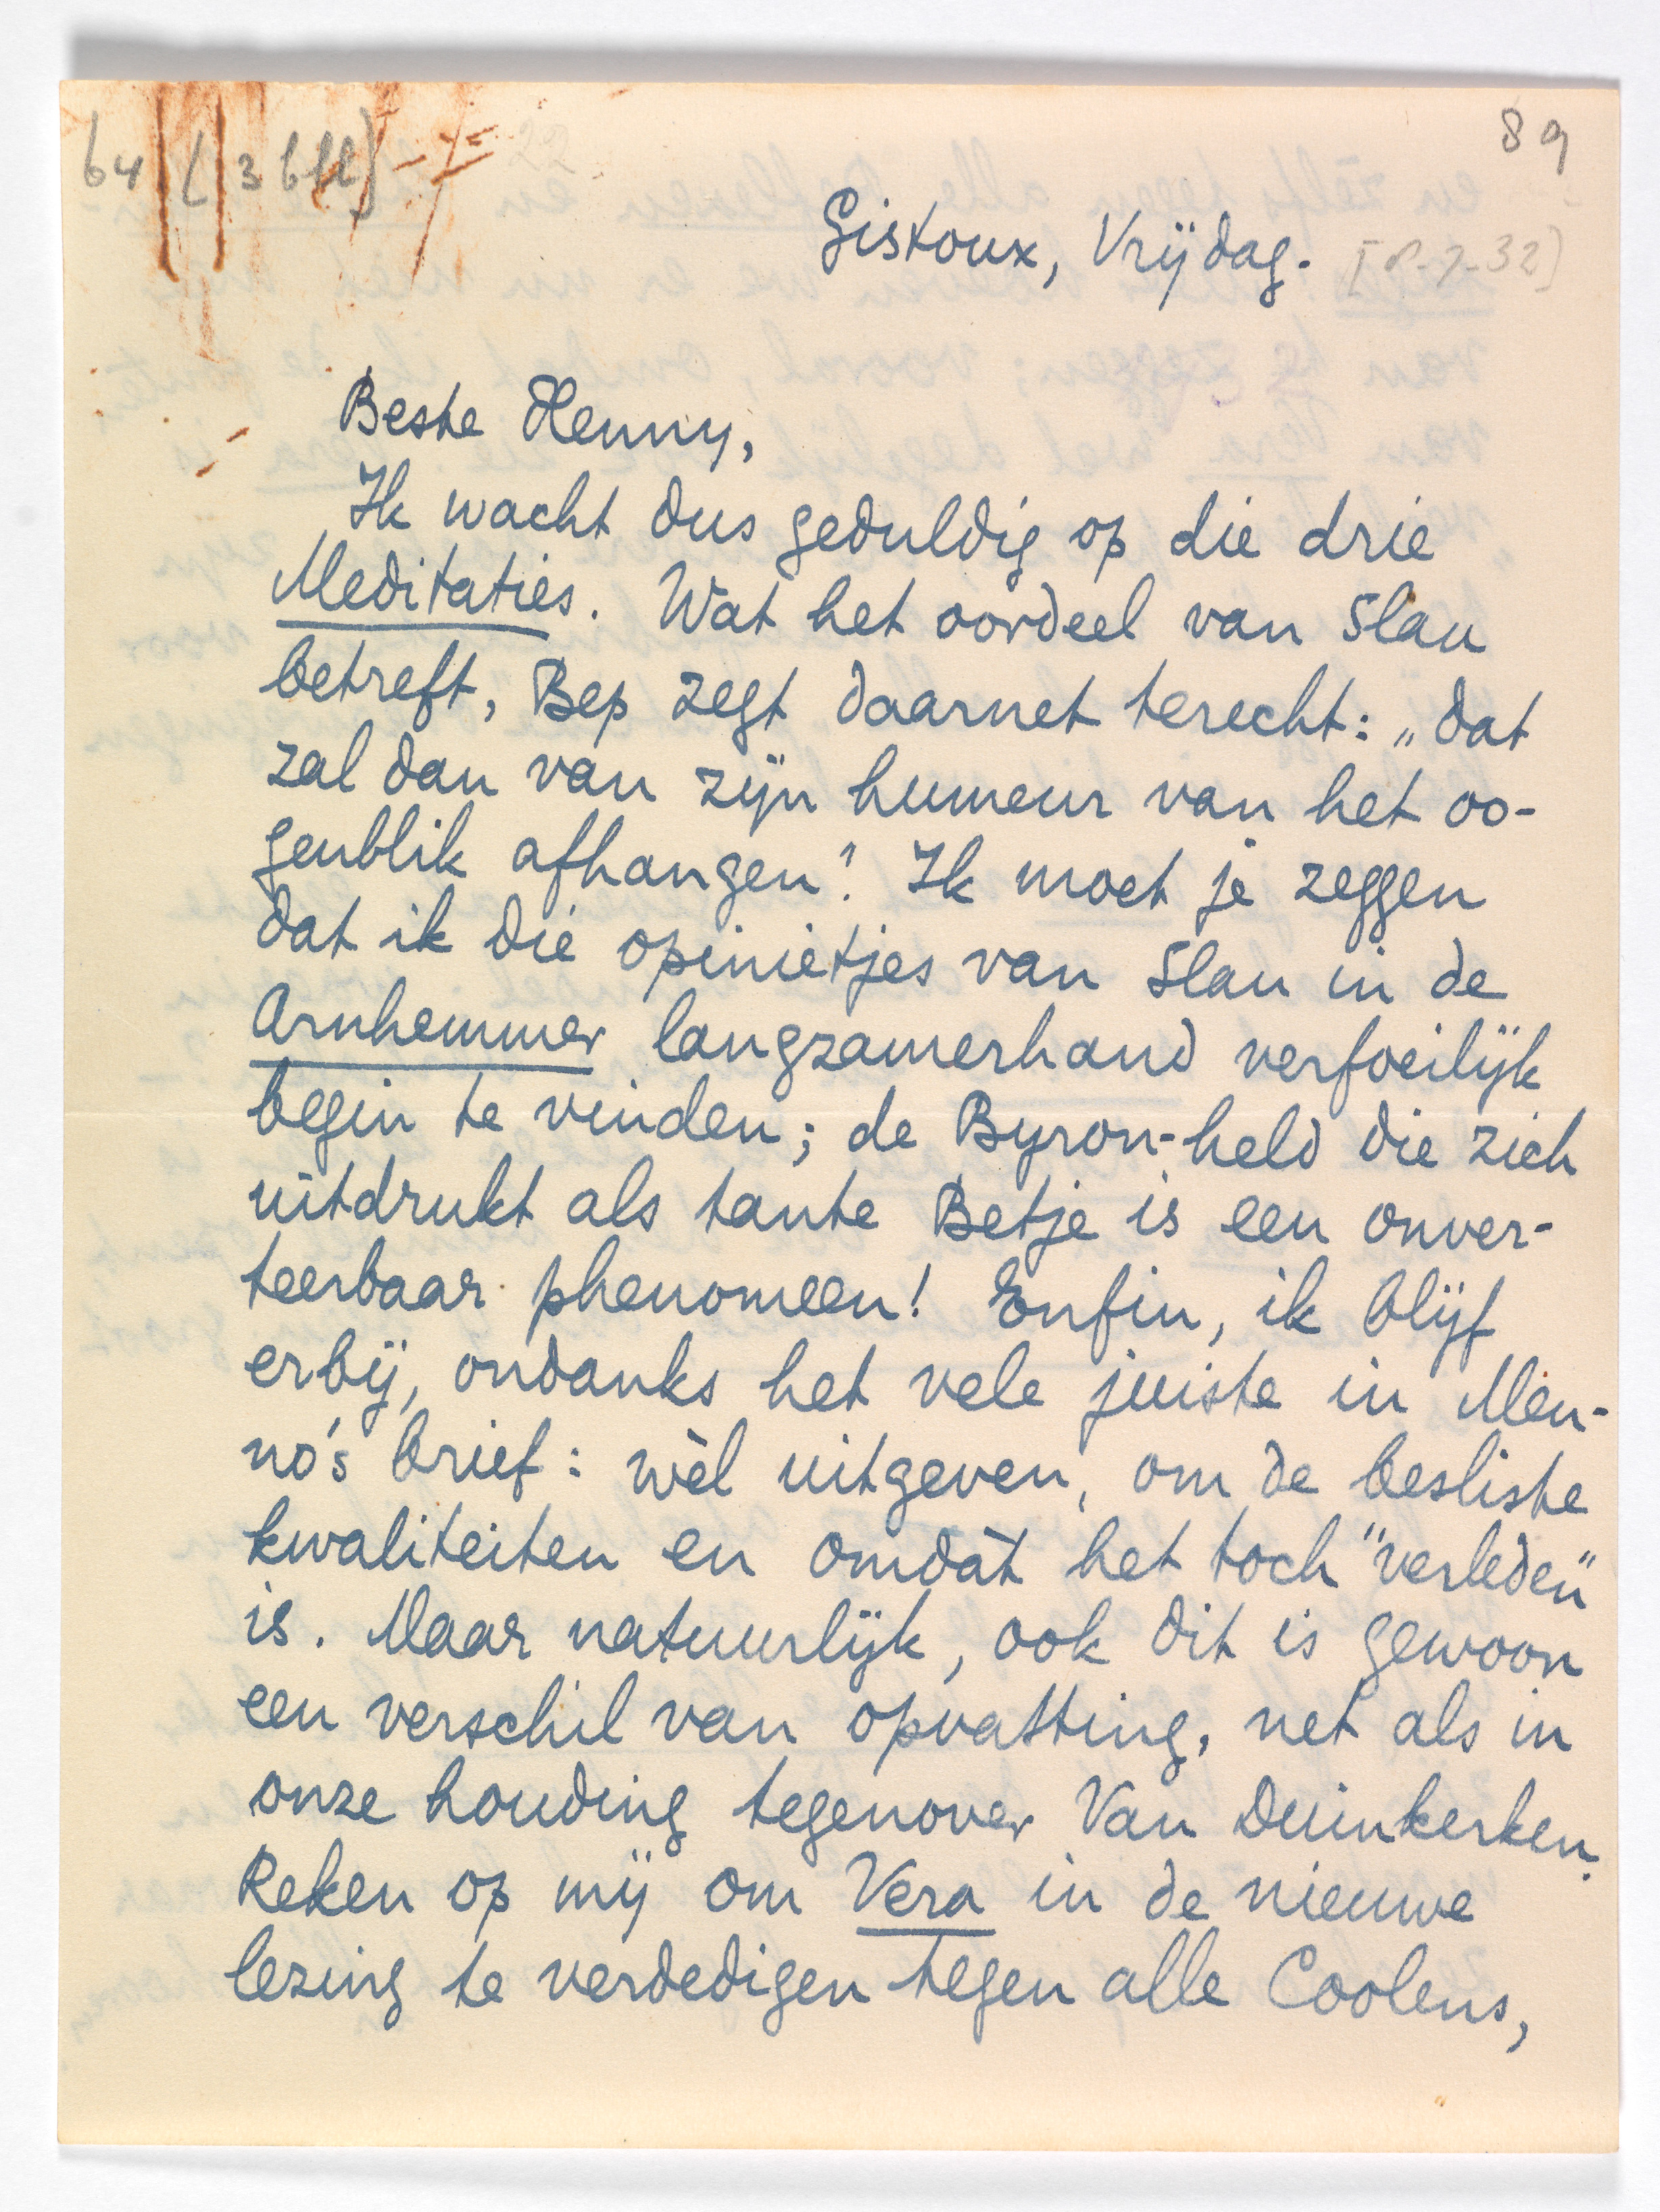 64 (3 bll)
89
Gistoux, Vrijdag. [8-7-32]
Beste Henny,
Ik wacht dus geduldig op die drie
Meditaties. Wat het oordeel van Slau
betreft, Bep zegt daarnet terecht: „dat
zal dan van zijn humeur van het oo-
genblik afhangen". Ik moet je zeggen
dat ik die opinietjes van Slau in de
Arnhemmer langzamerhand verfoeilijk
begin te vinden; de Byron-held die zich
uitdrukt als tante Betje is een onver-
teerbaar phenomeen! Enfin, ik blijf
erbij, ondanks het vele juiste in Men-
no's brief: wèl uitgeven, om de besliste
kwaliteiten en omdàt het toch "verleden"
is. Maar natuurlijk, ook dit is gewoon
een verschil van opvatting, net als in
onze houding tegenover Van Duinkerken.
Reken op mij om Vera in de nieuwe
lezing te verdedigen tegen alle Coolens,